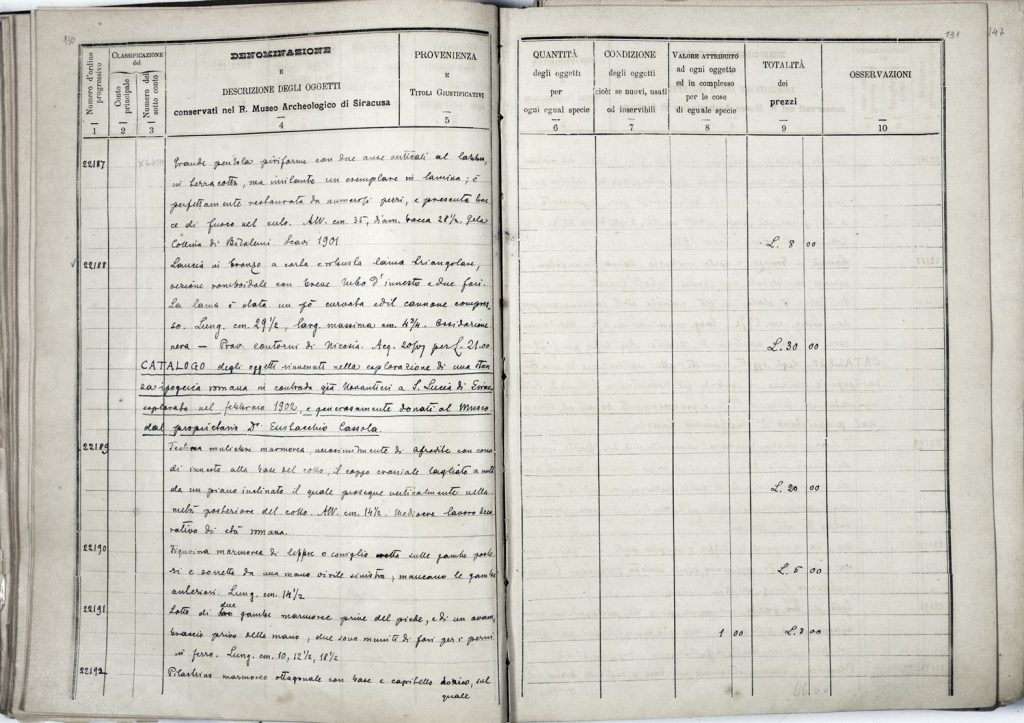 130
Numero d'ordine progressivo
CLASSIFICAZIONE
del
Conto principale
Numero del sotto conto
DENOMINAZIONE
E
DESCRIZIONE DEGLI OGGETTI
conservati nel R. Museo Archeologico di Siracusa
PROVENIENZA
E
TITOLI GIUSTIFICATIVI
1 2 3 4 5
22187 XLVIII Grande pentola piriforme con due anse verticali al labbro,
in terracotta, ma imitante un esemplare in lamina; è
perfettamente restaurata da numerosi pezzi, e presenta trac
ce di fuoco nel culo. Alt. cm. 35, diam. bocca 28 1/2. Gela
Collina di Bitalemi. Scavi 1901
√ 22188 Lancia in bronzo a corta e robusta lama triangolare,
sezione romboidale con breve tubo d'innesto e due fori.
La lama è stata un pò curvata ed il cannone compres
so. Lung. cm. 29 1/2, larg. massima cm. 4 3/4. Ossidazione
nera – Prov. contorni di Nicosia. Acq. per £. 21.00
CATALOGO degli oggetti rinvenuti nella esplorazione di una stan
za ipogeica romana in contrada già a S. Lucia di Sirac.
esplorata nel febbraio 1902, e generosamente donati al Museo
dal proprietario Dr. Eustacchio Cassola.
22189 Testina muliebre marmorea, verosimilmente di Afrodite con cono
di innesto alla base del collo, il cappo craniale tagliato a
da un piano inclinato il quale prosegue verticalmente nella
metà posteriore del collo. Alt. cm. 14 1/2. Mediocre lavoro deco
rativo di età romana.
22190 Figurina marmorea di leppre o coniglio retto sulle gambe poste
ri e sorretto da una mano virile sinistra, mancano le gambe
anteriori. Lung. cm. 14 1/2
22191 Lotto di due gambe marmoree prive del piede, e di un avam
braccio privo della mano, due sono muniti di fori per i perni
in ferro. Lung. cm. 10, 12 1/2, 18 1/2
22192 Pilastrino marmoreo ottagonale con base e capitello, sul
quale
131
147
QUANTITÀ
degli oggetti
per
ogni egual specie
CONDIZIONE
degli oggetti
cioè: se nuovi, usati
od inservibili
VALORE ATTRIBUITO
ad ogni oggetto
ed in complesso
per le cose
di eguale specie
TOTALITÀ
dei
prezzi
OSSERVAZIONI
6 7 8 9 10
L. 8 00
L. 30 00
L. 20 00
L. 5 00
1 00 L. 3 00
66.00